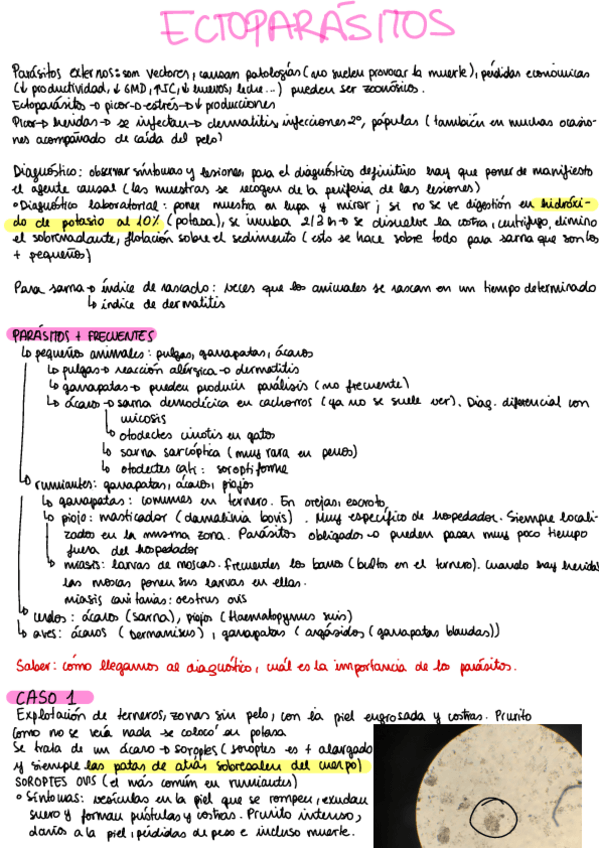 ECTOPARÁSITOS
Parásitos externos: son vectores, causan patologías (no suelen provocar la muerte), pérdidas económicas
(↓ productividad, ↓ GMD, ↑IC, ↓ huevos, leche...) pueden ser zoonósicos.
Ectoparásito → picor → estrés → ↓ producciones
Picor → heridas → se infectan → dermatitis, infecciones 2º, pápulas (también en muchas ocasio-
nes acompañado de caída del pelo)
Diagnóstico: observar síntomas y lesiones, para el diagnóstico definitivo hay que poner de manifiesto
el agente causal (las muestras se recogen de la periferia de las lesiones)
• Diagnóstico laboratorial: poner muestra en lupa y mirar; si no se ve digestión en hidróxi-
do de potasio al 10% (potasa), se incuba 2/3 h → se disuelve la costra, centrifugo, elimino
el sobrenadante, flotación sobre el sedimento (esto se hace sobre todo para sarna que son los
+ pequeños)
Para sarna → índice de rascado: veces que los animales se rascan en un tiempo determinado
↳ índice de dermatitis
PARÁSITOS + FRECUENTES
↳ pequeños animales: pulgas, garrapatas, ácaros
↳ pulgas → reacción alérgica → dermatitis
↳ garrapatas → pueden producir parálisis (no frecuente)
↳ ácaros → sarna demodécica en cachorros (ya no se suele ver). Diag. diferencial con
micosis
↳ otodectes cinotis en gatos
↳ sarna sarcóptica (muy rara en perros)
↳ otodectes cati: soroptiforme
↳ rumiantes: garrapatas, ácaros, piojos
↳ garrapatas: comunes en ternero. En orejas, escroto,
↳ piojo: masticador (damalinia bovis). Muy específico de hospedador. Siempre locali-
zados en la misma zona. Parásitos obligados → pueden pasar muy poco tiempo
fuera del hospedador
↳ miasis: larvas de moscas. Frecuentes los barros (bultos en el ternero). Cuando hay heridas
las moscas ponen sus larvas en ellas.
miasis cavitarias: oestrus ovis
↳ cerdos: ácaros (sarna), piojos (Haematopynus suis)
↳ aves: ácaros (dermanisus), garrapatas (argásidos (garrapatas blandas))
Saber: cómo llegamos al diagnóstico, cuál es la importancia de los parásitos.
CASO 1
Explotación de terneros, zonas sin pelo, con la piel engrosada y costras. Prurito
Como no se veía nada se colocó en potasa
Se trata de un ácaro → soroptes (soroptes es + alargado
y siempre las patas de atrás sobresalen del cuerpo)
SOROPTES OVIS (el más común en rumiantes)
• Síntomas: vesículas en la piel que se rompen, exudan
suero y forman pústulas y costras. Prurito intenso,
daños a la piel, pérdidas de peso e incluso muerte.